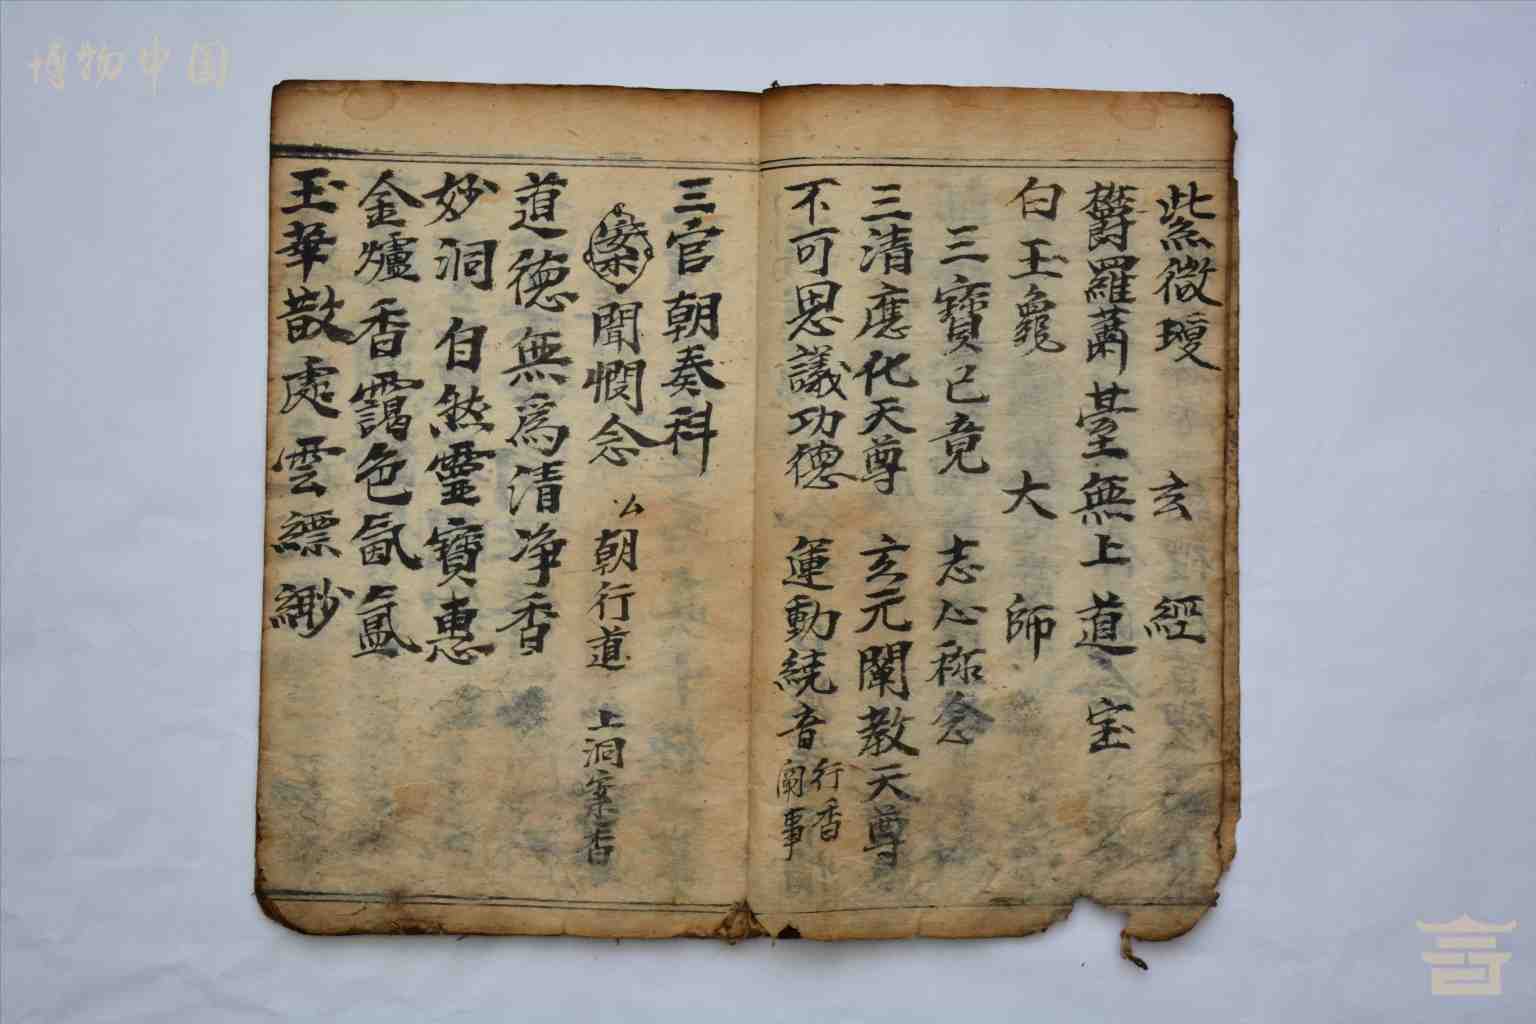 博物中国
紫微瓊 玄 經
欝羅蕭䑓無上道宝
白玉龜 大 師
三寶已竟 志心称念
三清應化天尊 玄元闡教天尊
不可思議功德 運動繞音 行香
闗事
三官朝奏科
案 聞憫念 厶朝行道 上洞案香
道德無為清净香
妙洞自然靈寶惠
金爐香靄色氤氳
玉華散處雲縹緲